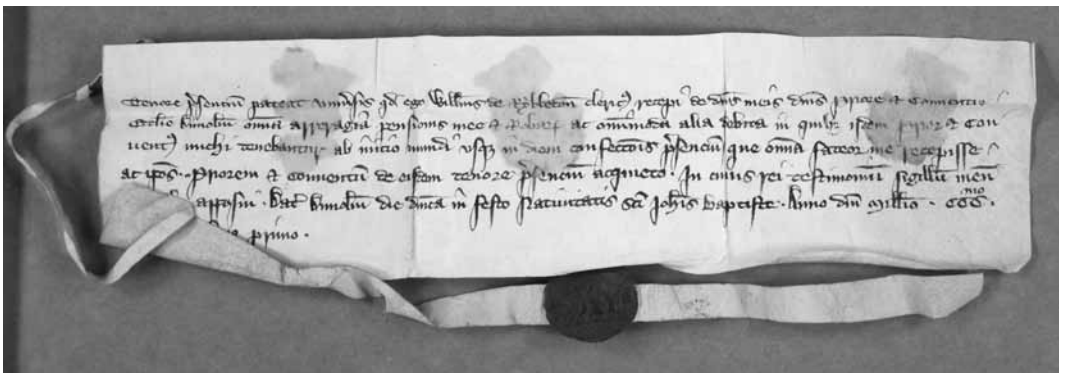 Tenore p̄senciū pateat univ̄sis qd̄ ego Willms de clericꝰ recepi de dn̄is meis dn̄is Priore et Conventu
Dunolm̄ om̄ia arreragia pensionis mee et ac om̄imoda alia debita in quibꝫ idem prior et Con
ventꝰ michi tenebantur ab inicio mundi usqꝫ in diem confecc̄ois p̄senciū que om̄ia fateor me recepisse
ac ip̄os Priorem et Conventū de eisdem tenore p̄senciū acquieto. In cuius rei testimoniū sigillū meū
apposui. Dat̄ Dunolm̄ die dn̄ica in festo Nativitatis Sc̄i Joh̄is Baptiste. Anno dn̄i Mill̄io. CCCmo.
primo.